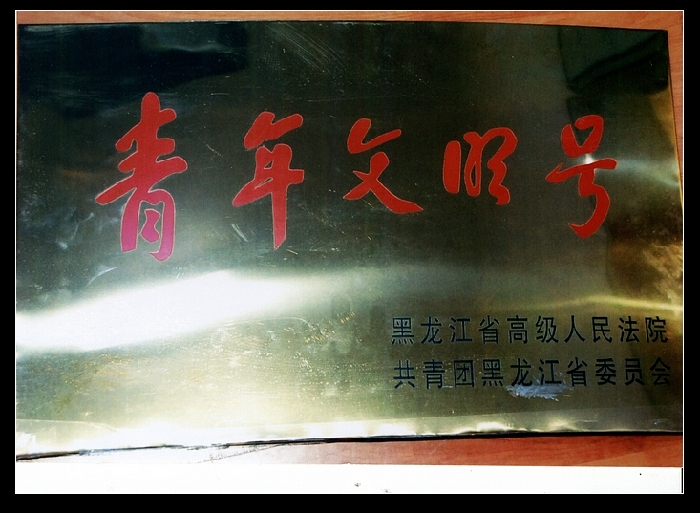 青年文明号
黑龙江省高级人民法院
共青团黑龙江省委员会